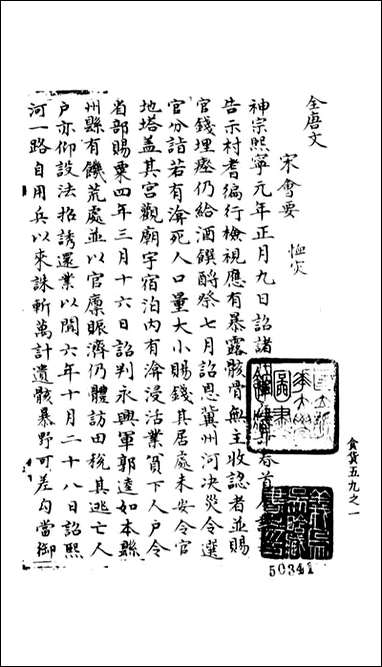 全唐文
宋會要
恤災
神宗熙寧元年正月九日詔諸春首
告示村耆徧行檢視應有暴露骸骨無主收認者並賜
官錢埋瘞仍給酒饌酹祭七月詔恩冀州河決災令選
官分詣若有渰死人口量大小賜錢其居處未安令官
地塔蓋其宮觀廟宇宿泊內有渰浸活業貧下人戶令
省部賜粟四年三月十六日詔判永興軍郭逵如本縣
州縣有饑荒處並以官廩賑濟仍體訪田稅其逃亡人
戶亦仰設法招誘還業以聞六年十月二十八日詔熙
河一路自用兵以來誅斬萬計遺骸暴野可差勾當御
食貨五九之一
50341